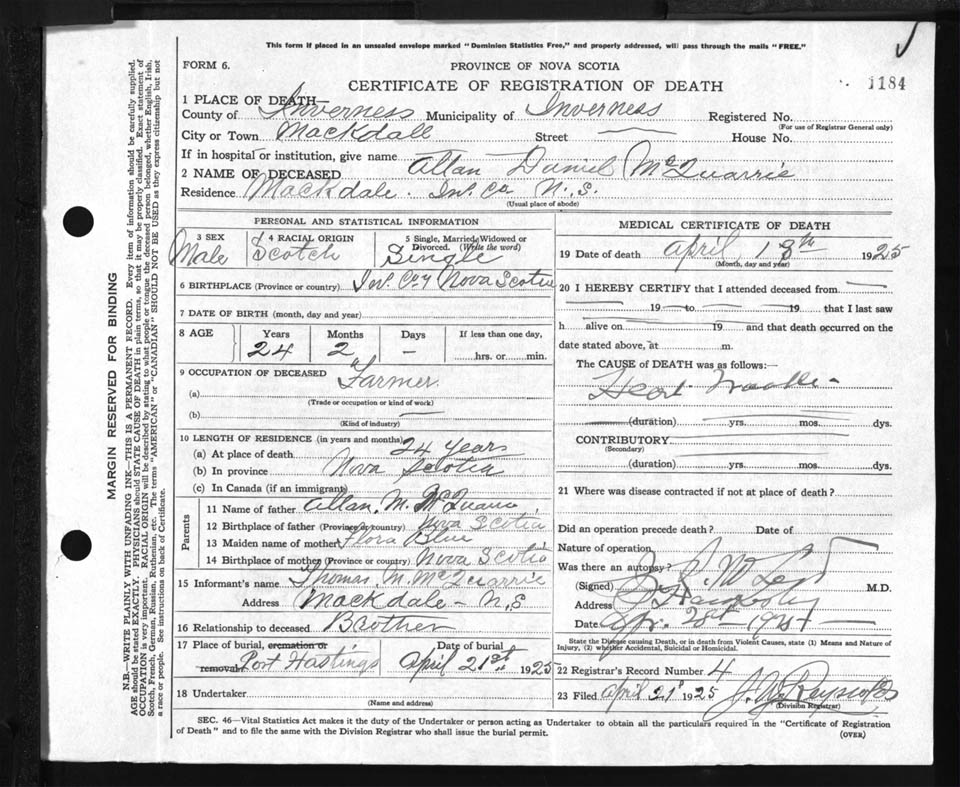 This form if placed in an unsealed envelope marked "Dominion Statistics Free," and properly addressed, will pass through the mails "FREE."
FORM 6.
PROVINCE OF NOVA SCOTIA
CERTIFICATE OF REGISTRATION OF DEATH
1184
1 PLACE OF DEATH—
County of Inverness Municipality of Inverness Registered No.
(For use of Registrar General only)
City or Town Mackdall Street House No.
If in hospital or institution, give name
2 NAME OF DECEASED Allan Daniel McQuarrie
Residence Mackdale. Inv. Co N.S.
(Usual place of abode)
PERSONAL AND STATISTICAL INFORMATION
3 SEX Male
4 RACIAL ORIGIN Scotch
5 Single, Married, Widowed or Divorced. (Write the word) Single
6 BIRTHPLACE (Province or country) Inv. Coy Nova Scotia
7 DATE OF BIRTH (month, day and year)
8 AGE Years Months Days If less than one day,
24 2 - hrs. or min.
9 OCCUPATION OF DECEASED Farmer
(a)
(Trade or occupation or kind of work)
(b)
(Kind of industry)
10 LENGTH OF RESIDENCE (in years and months)
(a) At place of death 24 years
(b) In province Nova Scotia
(c) In Canada (if an immigrant)
Parents
11 Name of father Allan. M. McQuarrie
12 Birthplace of father (Province or country) Nova Scotia
13 Maiden name of mother Flora Blue
14 Birthplace of mother (Province or country) Nova Scotia
15 Informant's name Thomas M. McQuarrie
Address Mackdale - N.S
16 Relationship to deceased Brother
17 Place of burial, cremation or removal Port Hastings
Date of burial April 21st 1925
18 Undertaker
(Name and address)
MEDICAL CERTIFICATE OF DEATH
19 Date of death April 18th 1925
(Month, day and year)
20 I HEREBY CERTIFY that I attended deceased from
19 to 19 that I last saw
h alive on 19 and that death occurred on the
date stated above, at m.
The CAUSE OF DEATH was as follows:—
Heart Trouble
(duration) yrs. mos. dys.
CONTRIBUTORY
(Secondary)
(duration) yrs. mos. dys.
21 Where was disease contracted if not at place of death?
Did an operation precede death? Date of
Nature of operation
Was there an autopsy?
(Signed) M.D.
Address
Date
State the Disease causing Death, or in death from Violent Causes, state (1) Means and Nature of
Injury, (2) whether Accidental, Suicidal or Homicidal.
22 Registrar's Record Number 4
23 Filed April 21st 1925
(Division Registrar)
SEC. 46—Vital Statistics Act makes it the duty of the Undertaker or person acting as Undertaker to obtain all the particulars required in the "Certificate of Registration
of Death" and to file the same with the Division Registrar who shall issue the burial permit.
(OVER)
MARGIN RESERVED FOR BINDING
N.B.—WRITE PLAINLY WITH UNFADING INK—THIS IS A PERMANENT RECORD. Every item of information should be carefully supplied.
AGE should be stated EXACTLY. PHYSICIANS should STATE CAUSE OF DEATH in plain terms, so that it may be properly classified. Exact statement of
OCCUPATION is very important. RACIAL ORIGIN will be described by stating to what people or tongue the deceased person belonged, whether English, Irish,
Scotch, French, German, Russian, Ruthenian, etc. The terms "AMERICAN" or "CANADIAN" SHOULD NOT BE USED as they express citizenship but not
a race or people. See instructions on back of Certificate.